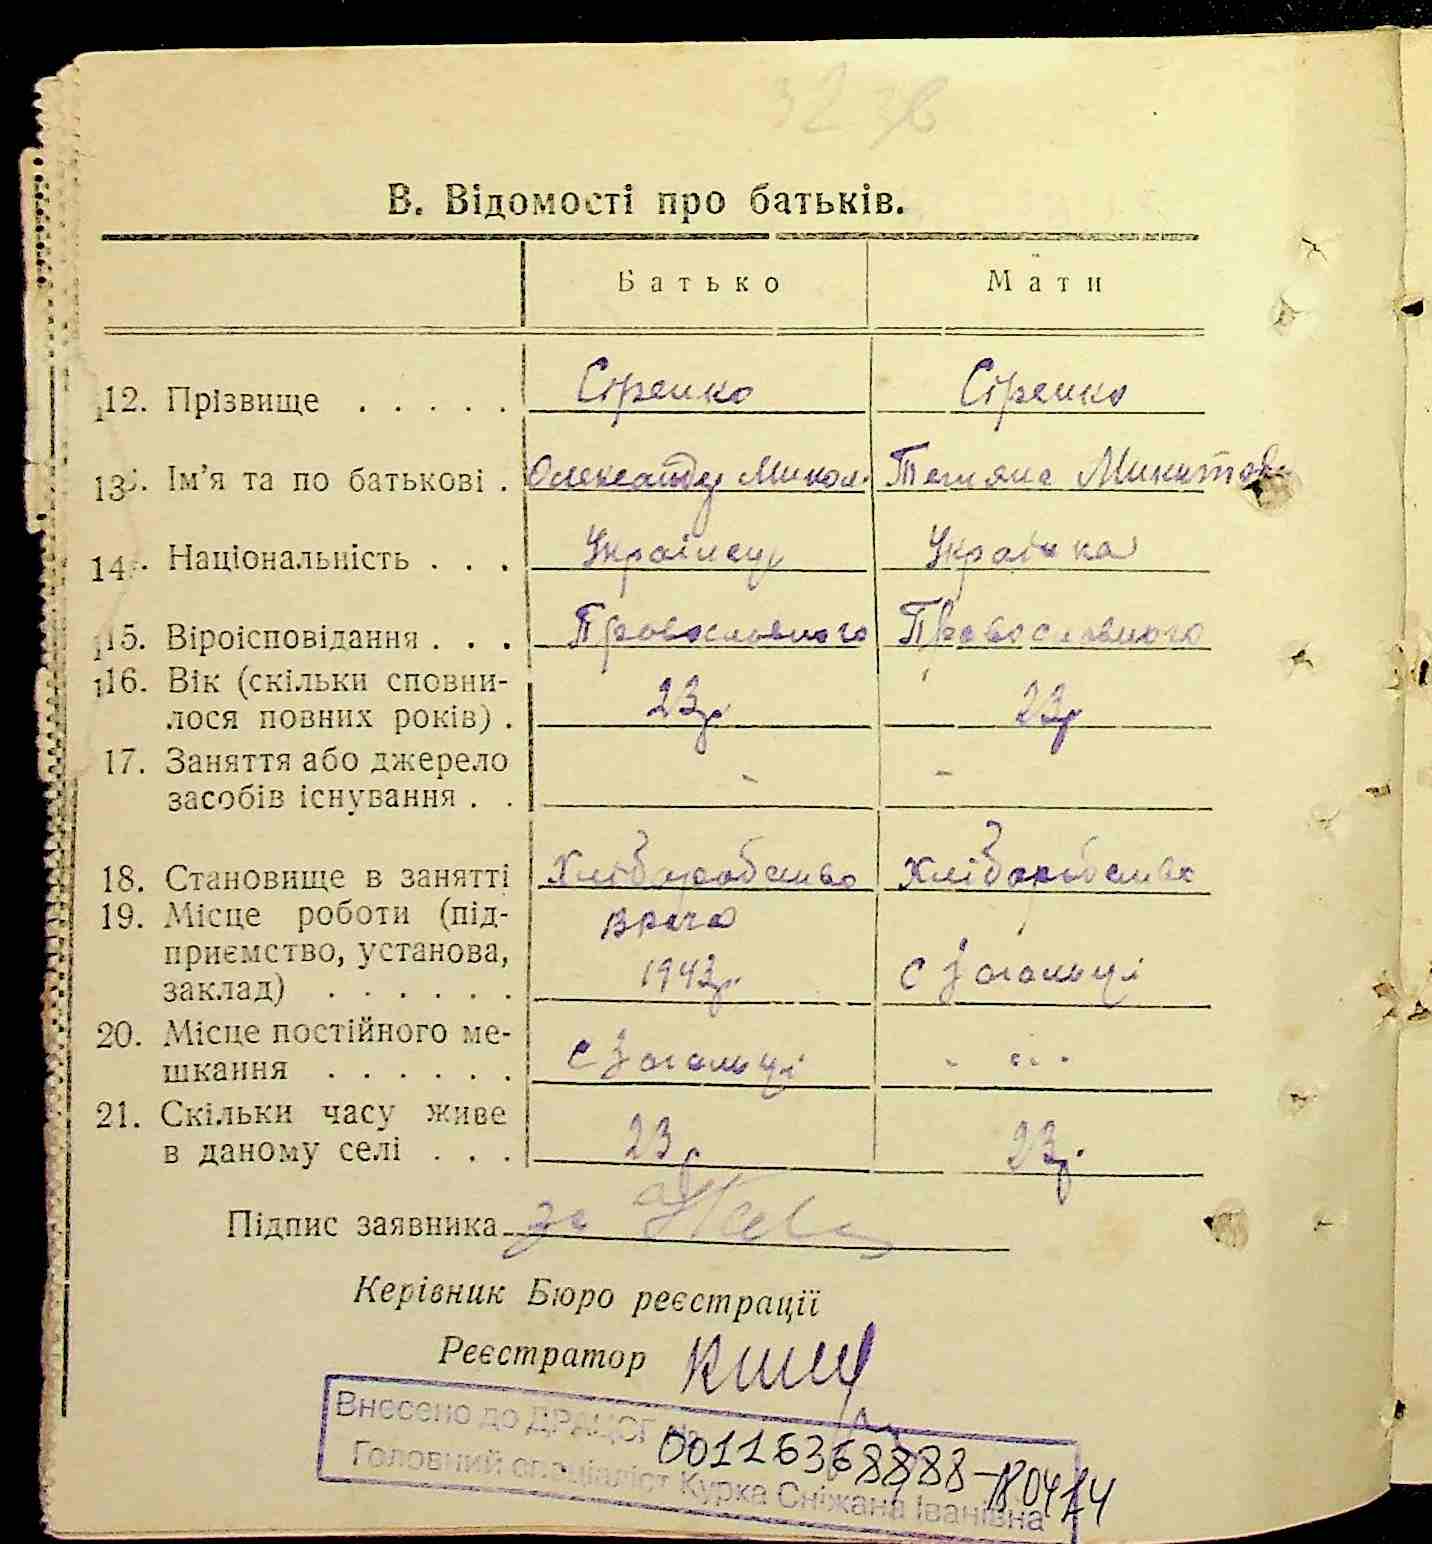 32 зв
В. Відомості про батьків.
Батько Мати
12. Прізвище . . . . . Сіренко Сіренко
13. Ім'я та по батькові . Олександр Микол. Тетяна Микитов
14. Національність . . . Українець Українка
15. Віроісповідання . . . Православного Православного
16. Вік (скільки сповни-
лося повних років) . 23р 23р
17. Заняття або джерело
засобів існування . . - -
18. Становище в занятті Хліборобство Хліборобство
19. Місце роботи (під-
приємство, установа,
заклад) . . . . . . 1943р. с Загальці
20. Місце постійного ме-
шкання . . . . . . с Загальці - " -
21. Скільки часу живе
в даному селі . . . 23р 23р.
Підпис заявника за
Керівник Бюро реєстрації
Реєстратор
Внесено до ДРАЦСГ № 00116368888-
Головний спеціаліст Курка Сніжана Іванівна